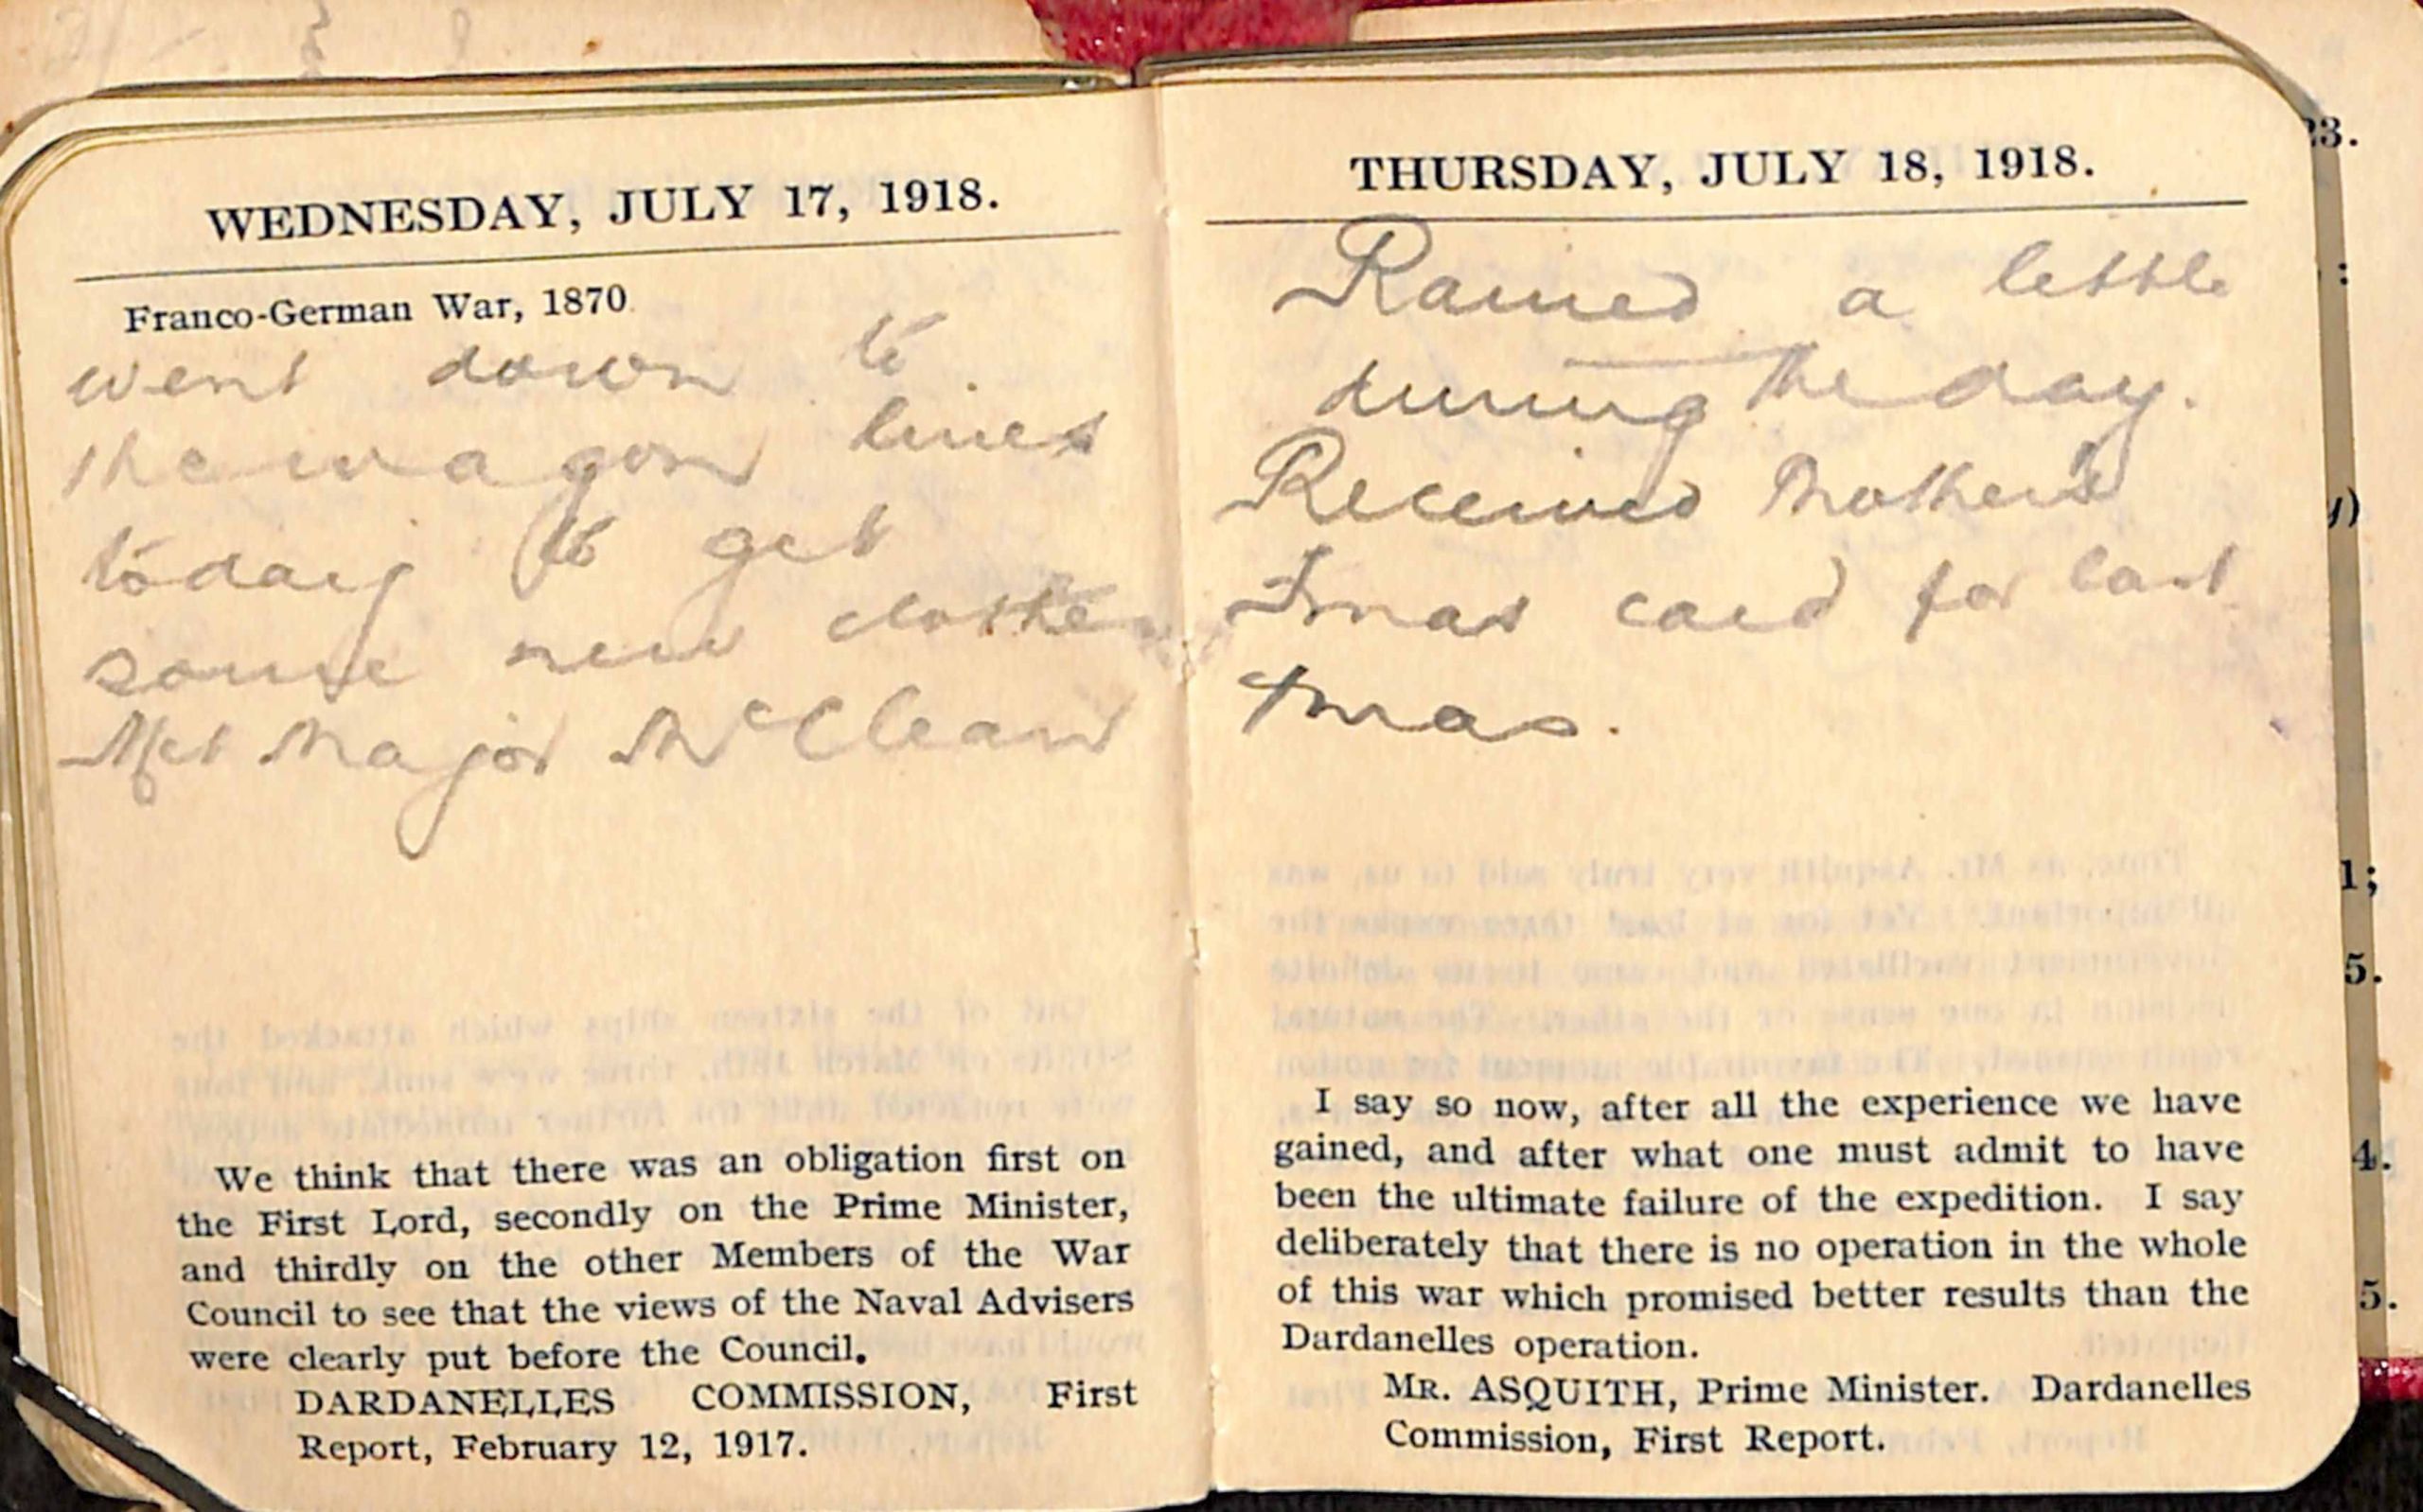 WEDNESDAY, JULY 17, 1918.
Franco-German War, 1870.
went down to
the wagon lines
today to get
some new clothes
Met Major McClean
We think that there was an obligation first on
the First Lord, secondly on the Prime Minister,
and thirdly on the other Members of the War
Council to see that the views of the Naval Advisers
were clearly put before the Council.
DARDANELLES COMMISSION, First
Report, February 12, 1917.
THURSDAY, JULY 18, 1918.
Rained a little
during the day.
Received Mothers
Xmas card for last
Xmas.
I say so now, after all the experience we have
gained, and after what one must admit to have
been the ultimate failure of the expedition. I say
deliberately that there is no operation in the whole
of this war which promised better results than the
Dardanelles operation.
MR. ASQUITH, Prime Minister. Dardanelles
Commission, First Report.
23.
:
)
1;
5.
4.
5.